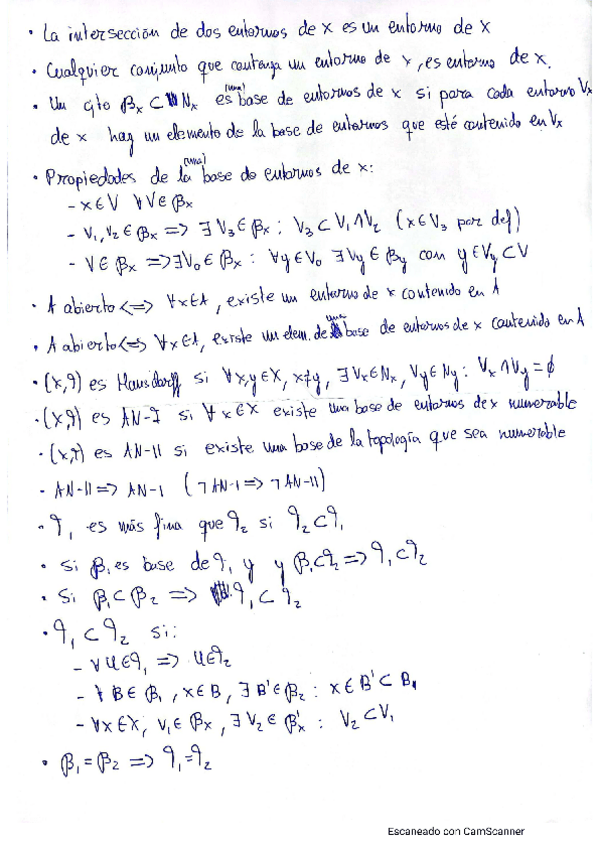 · La intersección de dos entornos de x es un entorno de x
· Cualquier conjunto que contenga un entorno de x, es entorno de x.
· Un cjto βx ⊂ Nx es (una) base de entornos de x si para cada entorno Vx
de x hay un elemento de la base de entornos que esté contenido en Vx
· Propiedades de la (una) base de entornos de x:
- x∈V ∀V∈βx
- V1,V2∈βx => ∃V3∈βx : V3⊂V1∩V2 (x∈V3 por def)
- V∈βx => ∃V0∈βx : ∀y∈V0 ∃Vy∈βy con y∈Vy⊂V
· A abierto <=> ∀x∈A, existe un entorno de x contenido en A
· A abierto <=> ∀x∈A, existe un elem. de una base de entornos de x contenido en A
· (X,𝒯) es Hausdorff si ∀x,y∈X, x≠y, ∃Vx∈Nx, Vy∈Ny : Vx∩Vy=∅
· (X,𝒯) es AN-I si ∀x∈X existe una base de entornos de x numerable
· (X,𝒯) es AN-II si existe una base de la topología que sea numerable
- AN-II => AN-I (¬AN-I => ¬AN-II)
· 𝒯1 es más fina que 𝒯2 si 𝒯2⊂𝒯1
· Si β1 es base de 𝒯1 y y β1⊂𝒯2 => 𝒯1⊂𝒯2
· Si β1⊂β2 => 𝒯1⊂𝒯2
· 𝒯1⊂𝒯2 si:
- ∀U∈𝒯1 => U∈𝒯2
- ∀B∈β1, x∈B, ∃B'∈β2 : x∈B'⊂B1
- ∀x∈X, V1∈βx, ∃V2∈β'x : V2⊂V1
· β1=β2 => 𝒯1=𝒯2
Escaneado con CamScanner